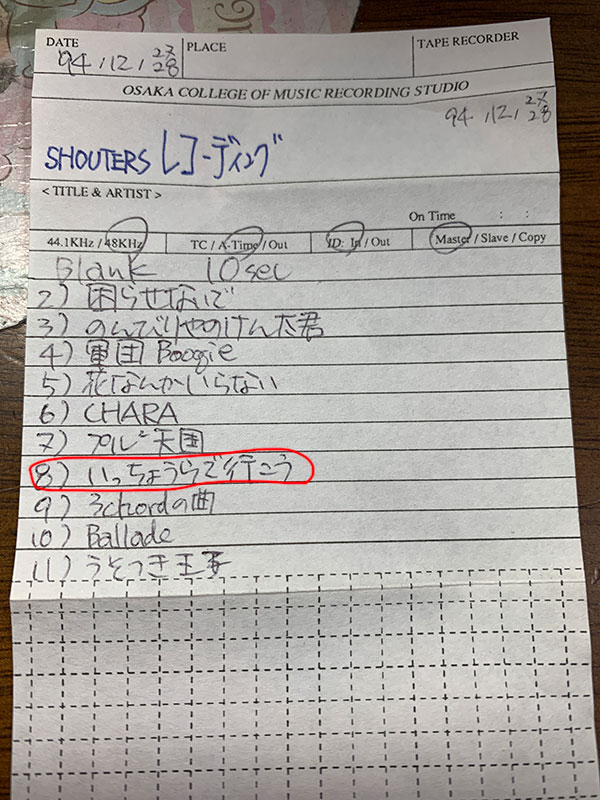 DATE PLACE TAPE RECORDER
94.12.27 28
OSAKA COLLEGE OF MUSIC RECORDING STUDIO
94.12.27 28
SHOUTERS レコーディング
< TITLE & ARTIST >
On Time : :
44.1KHz / 48KHz TC / A-Time / Out ID: In / Out Master / Slave / Copy
Blank 10sec
2) 困らせないで
3) のんびりやのけん太君
4) 軍団 Boogie
5) 花なんかいらない
6) CHARA
7) プルプル天国
8) いっちょうらで行こう
9) 3chordの曲
10) Ballade
11) うそつき王子